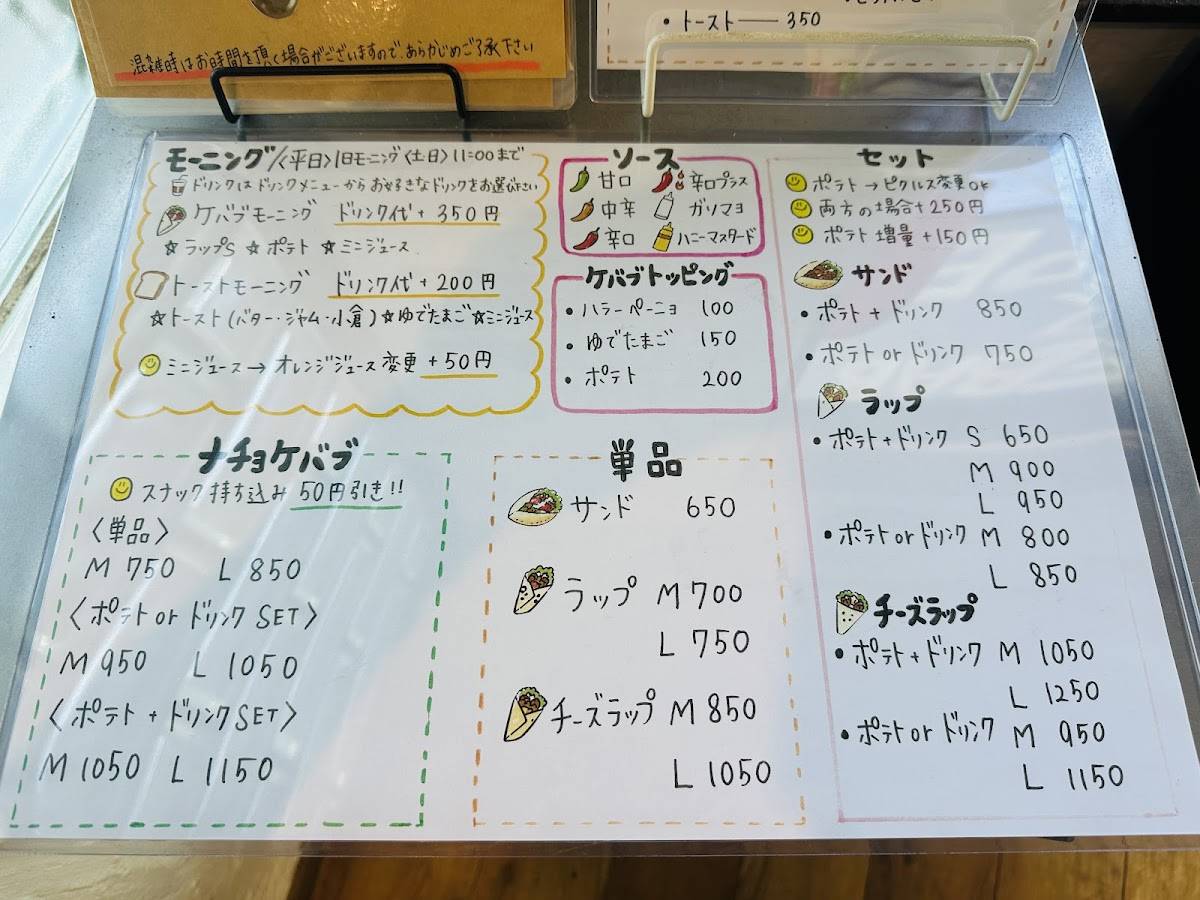 混雑時はお時間を頂く場合がございますので、あらかじめご了承下さい
・トースト── 350
モーニング/〈平日〉1日モーニング〈土日〉11:00まで
ドリンクはドリンクメニューからお好きなドリンクをお選び下さい
ケバブモーニング ドリンク代+350円
☆ラップS ☆ポテト ☆ミニジュース
トーストモーニング ドリンク代+200円
☆トースト(バター・ジャム・小倉)☆ゆでたまご☆ミニジュース
ミニジュース→オレンジジュース変更+50円
ソース
甘口 辛口プラス
中辛 ガリマヨ
辛口 ハニーマスタード
ケバブトッピング
・ハラーペーニョ 100
・ゆでたまご 150
・ポテト 200
セット
ポテト→ピクルス変更OK
両方の場合+250円
ポテト増量+150円
サンド
・ポテト+ドリンク 850
・ポテトorドリンク 750
ラップ
・ポテト+ドリンク S 650
M 900
L 950
・ポテトorドリンク M 800
L 850
チーズラップ
・ポテト+ドリンク M 1050
L 1250
・ポテトorドリンク M 950
L 1150
ナチョケバブ
スナック持ち込み 50円引き!!
〈単品〉
M 750 L 850
〈ポテトorドリンクSET〉
M 950 L 1050
〈ポテト+ドリンクSET〉
M 1050 L 1150
単品
サンド 650
ラップ M 700
L 750
チーズラップ M 850
L 1050